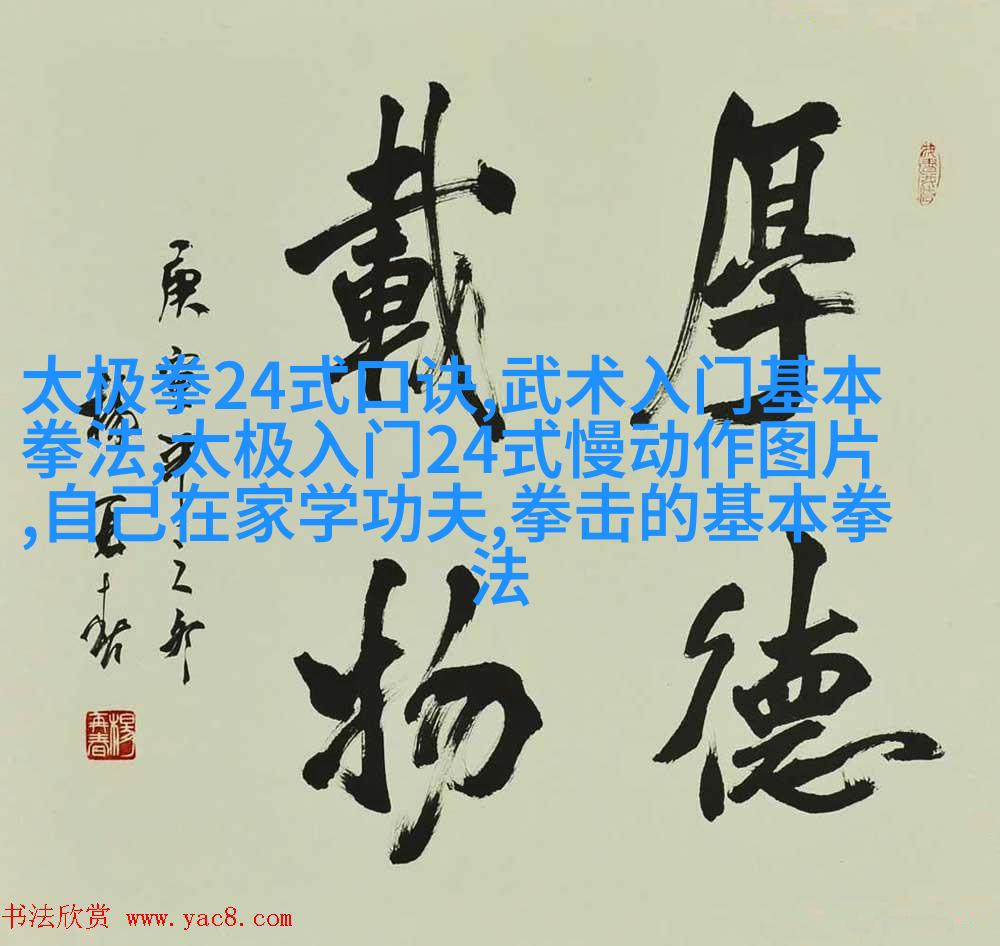 厚德
載物
庚寅
楊再春
太极拳24式口诀,武术入门基本
拳法,太极入门24式慢动作图片
,自己在家学功夫,拳击的基本拳
法
楊再春
书法欣赏 www.yac8.com